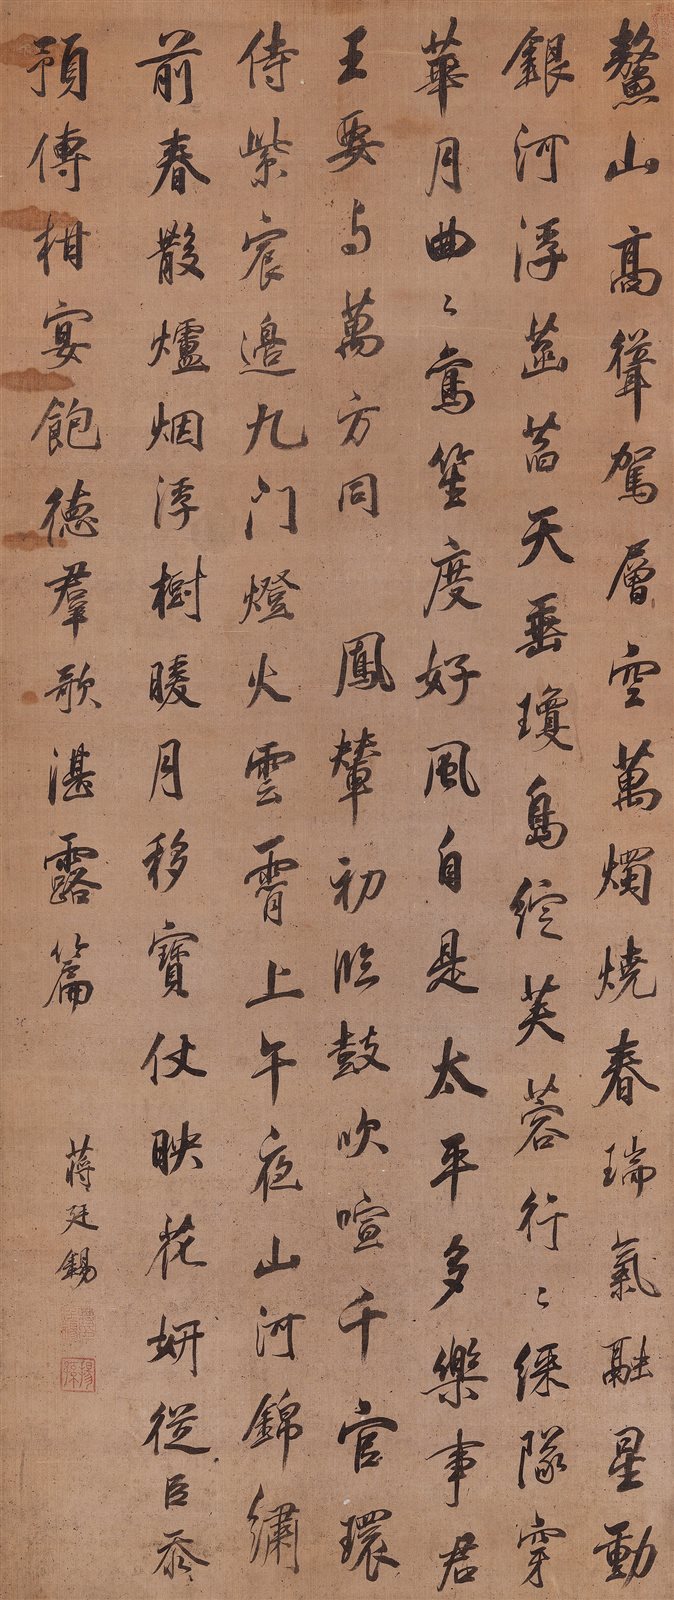 鰲山高聳駕層空萬燭燒春瑞氣融星動
銀河浮菡萏天垂瓊島綻芙蓉行〻綵隊穿
華月曲〻鸞笙度好風自是太平多樂事君
王要与萬方同　鳳輦初臨鼓吹喧千官環
侍紫宸邉九门燈火雲霄上午夜山河錦繡
前春散爐烟浮樹暖月移寳仗映花妍從臣忝
預傳柑宴飽德羣歌湛露篇
蔣廷錫